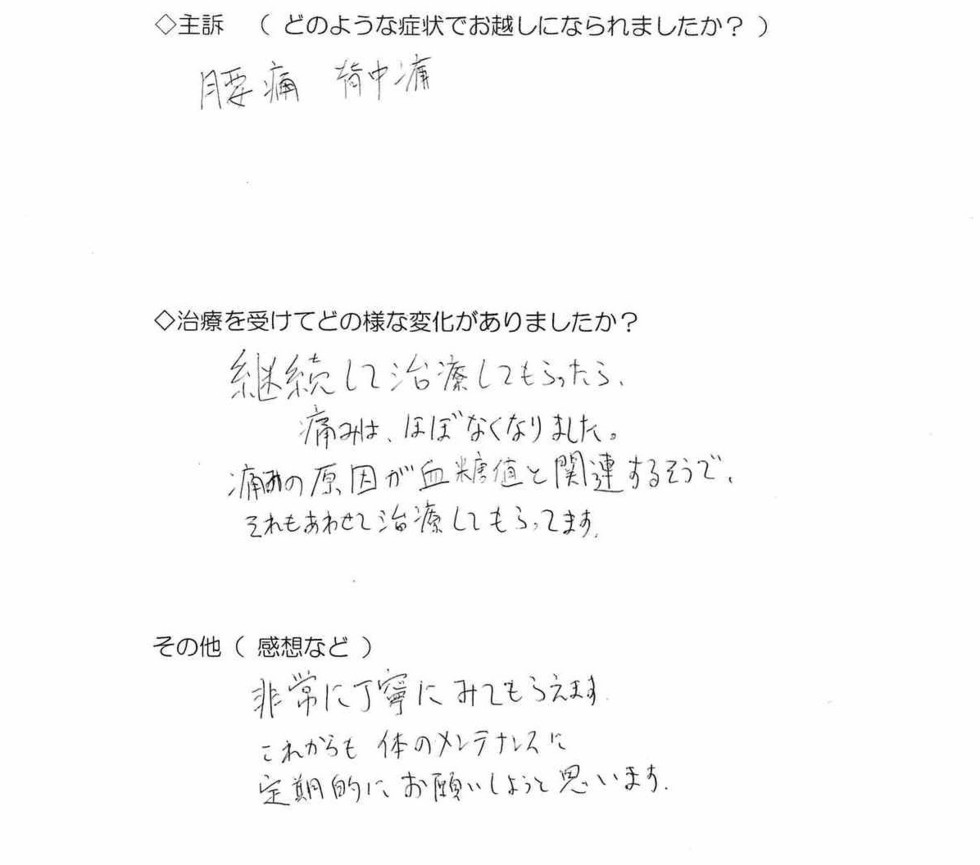 ◇主訴 （ どのような症状でお越しになられましたか？ ）
腰痛 背中痛
◇治療を受けてどの様な変化がありましたか？
継続して治療してもらったら、
痛みは、ほぼなくなりました。
痛みの原因が血糖値と関連するそうで、
それもあわせて治療してもらってます。
その他（ 感想など ）
非常に丁寧にみてもらえます。
これからも 体のメンテナンスに
定期的に お願いしようと思います。